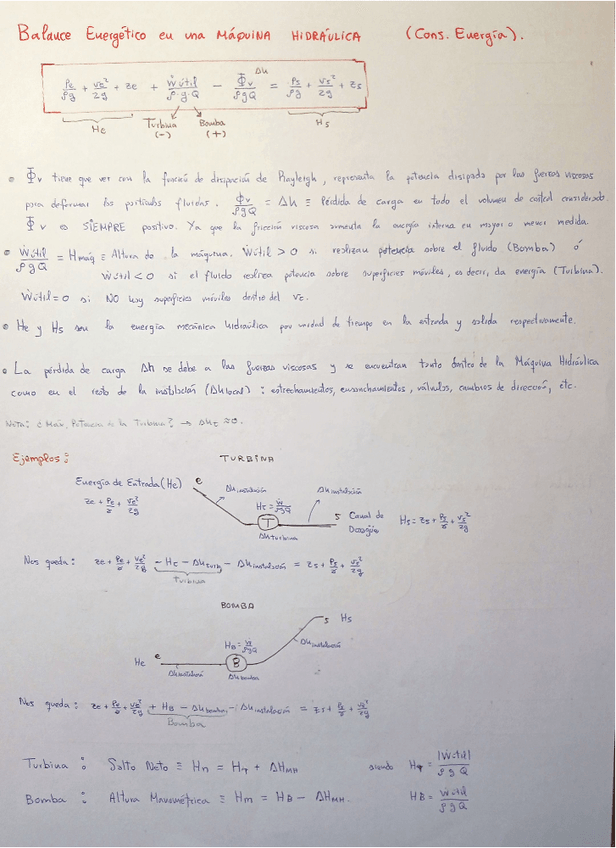 Balance Energético en una MÁQUINA HIDRÁULICA (Cons. Energía).
Pe/ρg + ve²/2g + ze + Ẇútil/ρ·g·Q − Φv/ρgQ = Ps/ρg + vs²/2g + zs
Δh
He Turbina (−) Bomba (+) Hs
• Φv tiene que ver con la función de disipación de Rayleigh, representa la potencia disipada por las fuerzas viscosas
para deformar las partículas fluidas. Φv/ρgQ = Δh ≡ Pérdida de carga en todo el volumen de control considerado.
Φv es SIEMPRE positivo. Ya que la fricción viscosa aumenta la energía interna en mayor o menor medida.
• Ẇútil/ρgQ = Hmáq ≡ Altura de la máquina. Ẇútil > 0 si realizan potencia sobre el fluido (Bomba) ó
Ẇútil < 0 si el fluido realiza potencia sobre superficies móviles, es decir, da energía (Turbina).
Ẇútil = 0 si NO hay superficies móviles dentro del Vc.
• He y Hs son la energía mecánica hidráulica por unidad de tiempo en la entrada y salida respectivamente.
• La pérdida de carga Δh se debe a las fuerzas viscosas y se encuentran tanto dentro de la Máquina Hidráulica
como en el resto de la instalación (Δh local) : estrechamientos, ensanchamientos, válvulas, cambios de dirección, etc.
Nota: ¿Max. Potencia de la Turbina? → Δht ≈ 0.
Ejemplos: TURBINA
Energía de Entrada (He) e Δh instalación Δh instalación
ze + Pe/γ + ve²/2g Ht = Ẇ/ρgQ T s Canal de Desagüe Hs = zs + Ps/γ + vs²/2g
Δh turbina
Nos queda: ze + Pe/γ + ve²/2g − Ht − Δh turb − Δh instalación = zs + Ps/γ + vs²/2g
Turbina
BOMBA
s Hs
HB = Ẇ/ρgQ Δh instalación
He e B
Δh instalación Δh bomba
Nos queda: ze + Pe/γ + ve²/2g + HB − Δh bomba − Δh instalación = zs + Ps/γ + vs²/2g
Bomba
Turbina : Salto Neto ≡ Hn = HT + ΔHMH siendo HT = |Ẇútil|/ρgQ
Bomba : Altura Manométrica ≡ Hm = HB − ΔHMH. HB = Ẇútil/ρgQ